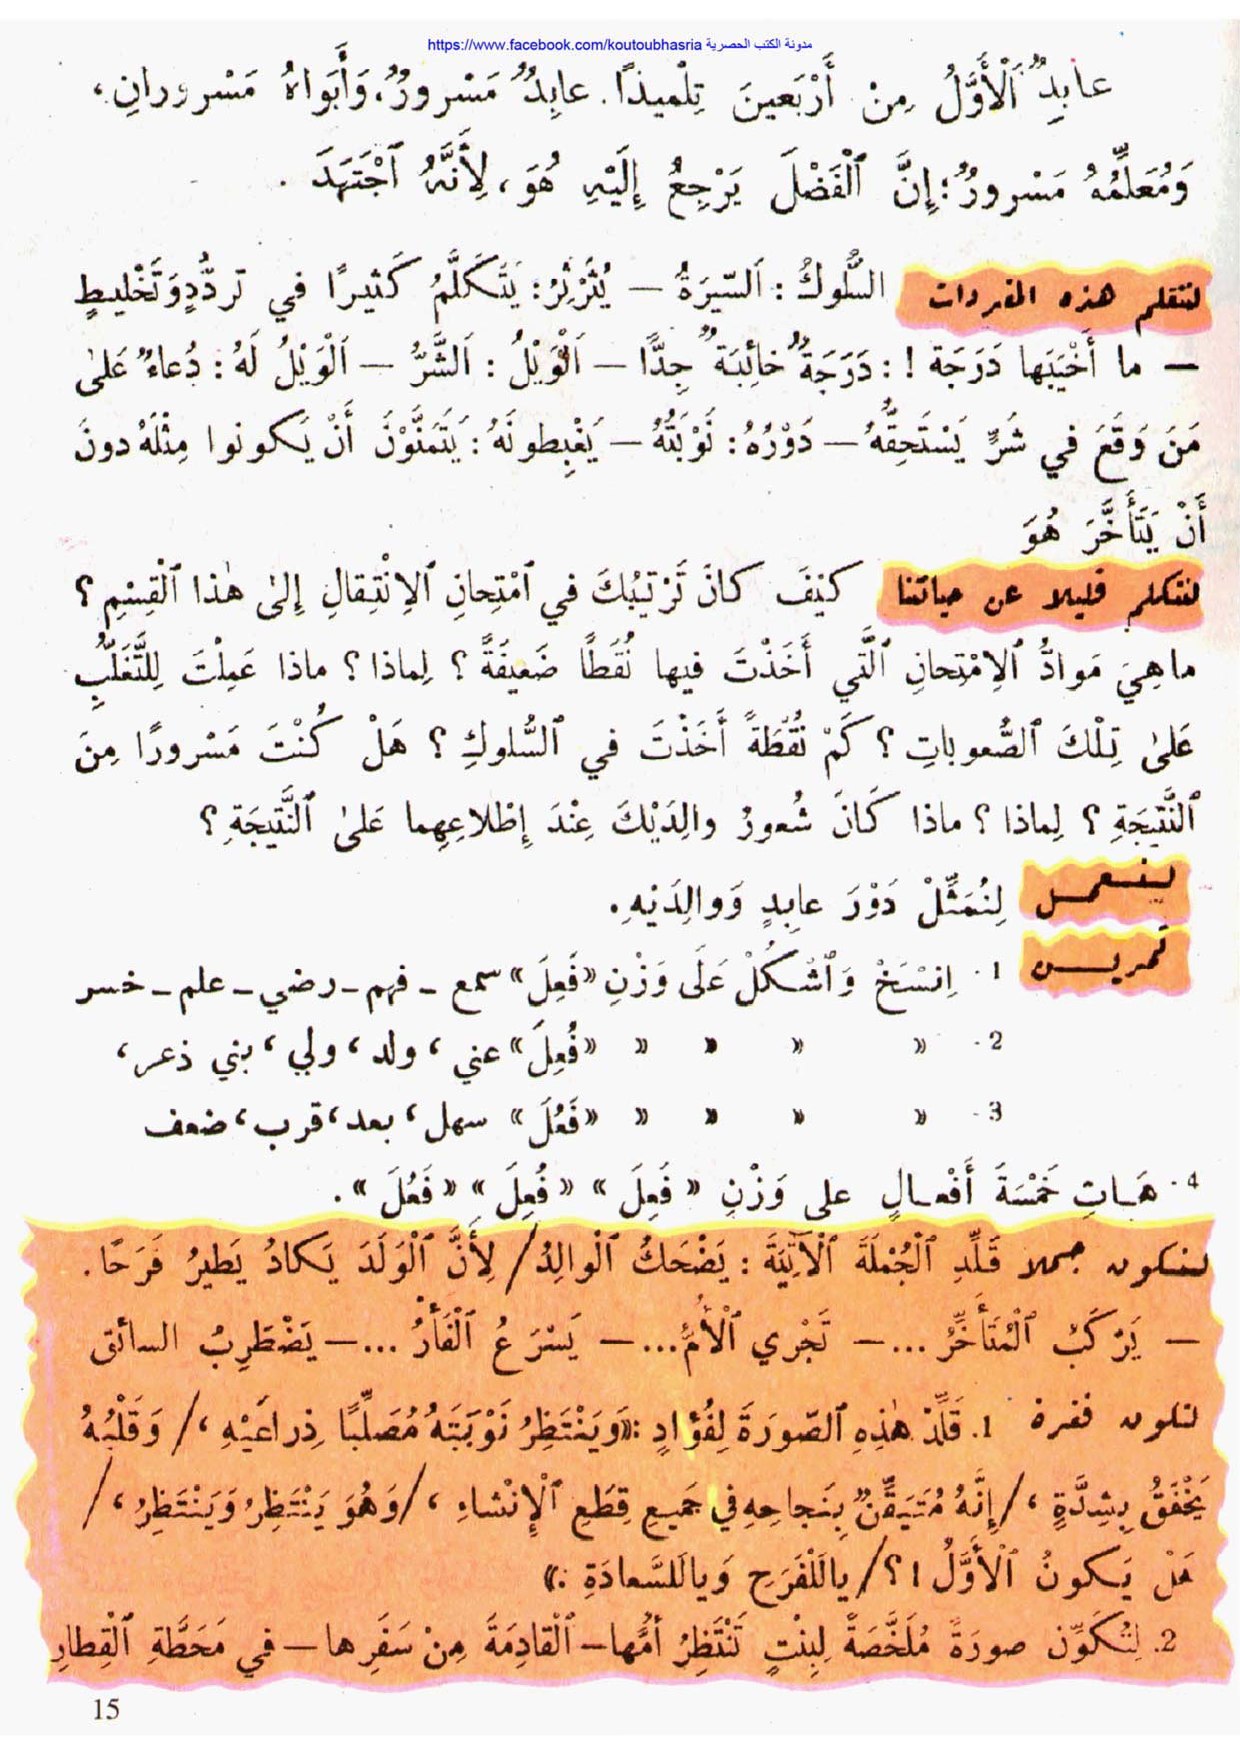 مدونة الكتب الحصرية https://www.facebook.com/koutoubhasria
عابِدٌ ٱلْأَوَّلُ مِنْ أَرْبَعينَ تِلْميذًا. عابِدٌ مَسْرورٌ، وَأَبَواهُ مَسْرورانِ،
وَمُعَلِّمُهُ مَسْرورٌ؛ إِنَّ ٱلْفَضْلَ يَرْجِعُ إِلَيْهِ هُوَ، لِأَنَّهُ ٱجْتَهَدَ .
لنتعلم هذه المفردات السُّلُوكُ : اَلسّيرَةُ — يُثَرْثِرُ : يَتَكَلَّمُ كَثيرًا في تَردُّدٍ وَتَخْليطٍ
— ما أَخْيَبَها دَرَجَة ! : دَرَجَةٌ خائِبَةٌ جِدًّا — اَلْوَيْلُ : اَلشَّرُّ — اَلْوَيْلُ لَهُ : دُعاءٌ عَلىٰ
مَنَ وَقَعَ في شَرٍّ يَسْتَحِقُّهُ — دَوْرُهُ : نَوْبَتُهُ — يَغْبِطونَهُ : يَتَمَنَّوْنَ أَنْ يَكونوا مِثْلَهُ دونَ
أَنْ يَتَأَخَّرَ هُوَ
لنتكلم قليلا عن حياتنا كَيْفَ كانَ تَرْتيبُكَ في ٱمْتِحانِ ٱلِانْتِقالِ إِلىٰ هٰذا ٱلْقِسْمِ ؟
ما هِيَ مَوادُّ ٱلِامْتِحانِ ٱلَّتي أَخَذْتَ فيها نُقَطًا ضَعيفَةً ؟ لِماذا ؟ ماذا عَمِلْتَ لِلتَّغَلُّبِ
عَلىٰ تِلْكَ ٱلصُّعوباتِ ؟ كَمْ نُقْطَةً أَخَذْتَ في ٱلسُّلوكِ ؟ هَلْ كُنْتَ مَسْرورًا مِنَ
ٱلنَّتيجَةِ ؟ لِماذا ؟ ماذا كَانَ شُعورُ والِدَيْكَ عِنْدَ إِطْلاعِهِما عَلىٰ ٱلنَّتيجَةِ ؟
لنعمل لِنُمَثِّلْ دَوْرَ عابِدٍ وَوالِدَيْهِ.
تمرين 1 . اِنْسَخْ وَٱشْكُلْ عَلَى وَزْنِ «فَعِلَ» سمع – فهم – رضي – علم – خسر
2 . » » » » «فُعِلَ» عني، ولد، ولي، بني ذعر،
3 . » » » » «فَعُلَ» سهل، بعد، قرب، ضعف
4 . هَـاتِ خَمْسَةَ أَفْعـالٍ على وَزْنِ « فَعِلَ » « فُعِلَ » « فَعُلَ ».
لنكون جملا قَلِّدِ ٱلْجُمْلَةَ ٱلْآتِيَةَ : يَضْحَكُ ٱلْوالِدُ / لِأَنَّ ٱلْوَلَدَ يَكادُ يَطيرُ فَرَحًا.
— يَرْكَبُ ٱلْمُتَأَخِّرُ ... — تَجْري ٱلْأُمُّ... — يَسْرَعُ ٱلْفَأْرُ ... — يَضْطَرِبُ السائق
لنكون فقرة 1. قَلِّدْ هٰذِهِ ٱلصّورَةَ لِفُؤادٍ : «وَيَنْتَظِرُ نَوْبَتَهُ مُصَلِّبًا ذِراعَيْهِ ، / وَقَلْبُهُ
يَخْفَقُ بِشِدَّةٍ ، / إِنَّهُ مُتَيَقِّنٌ بِنَجاحِهِ في جَميعِ قِطَعِ ٱلْإِنْشاءِ ، / وَهُوَ يَنْتَظِرُ وَيَنْتَظِرُ ، /
هَلْ يَكونُ ٱلْأَوَّلُ !؟ / يالَلْفَرَحِ وَيالَلسَّعادَةِ .»
2. لِنُكَوِّن صورَةً مُلَخَّصَةً لِبِنْتٍ تَنْتَظِرُ أُمَّها – ٱلْقادِمَةَ مِنْ سَفَرِها – في مَحَطَّةِ ٱلْقِطارِ
15